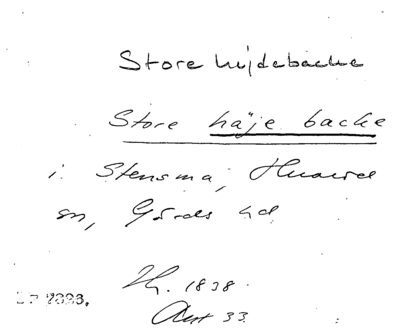 Store hijdebacke
Store häje backe
i Stensma, Huarød
sn, Gärds hd
Th. 1838
Akt 33